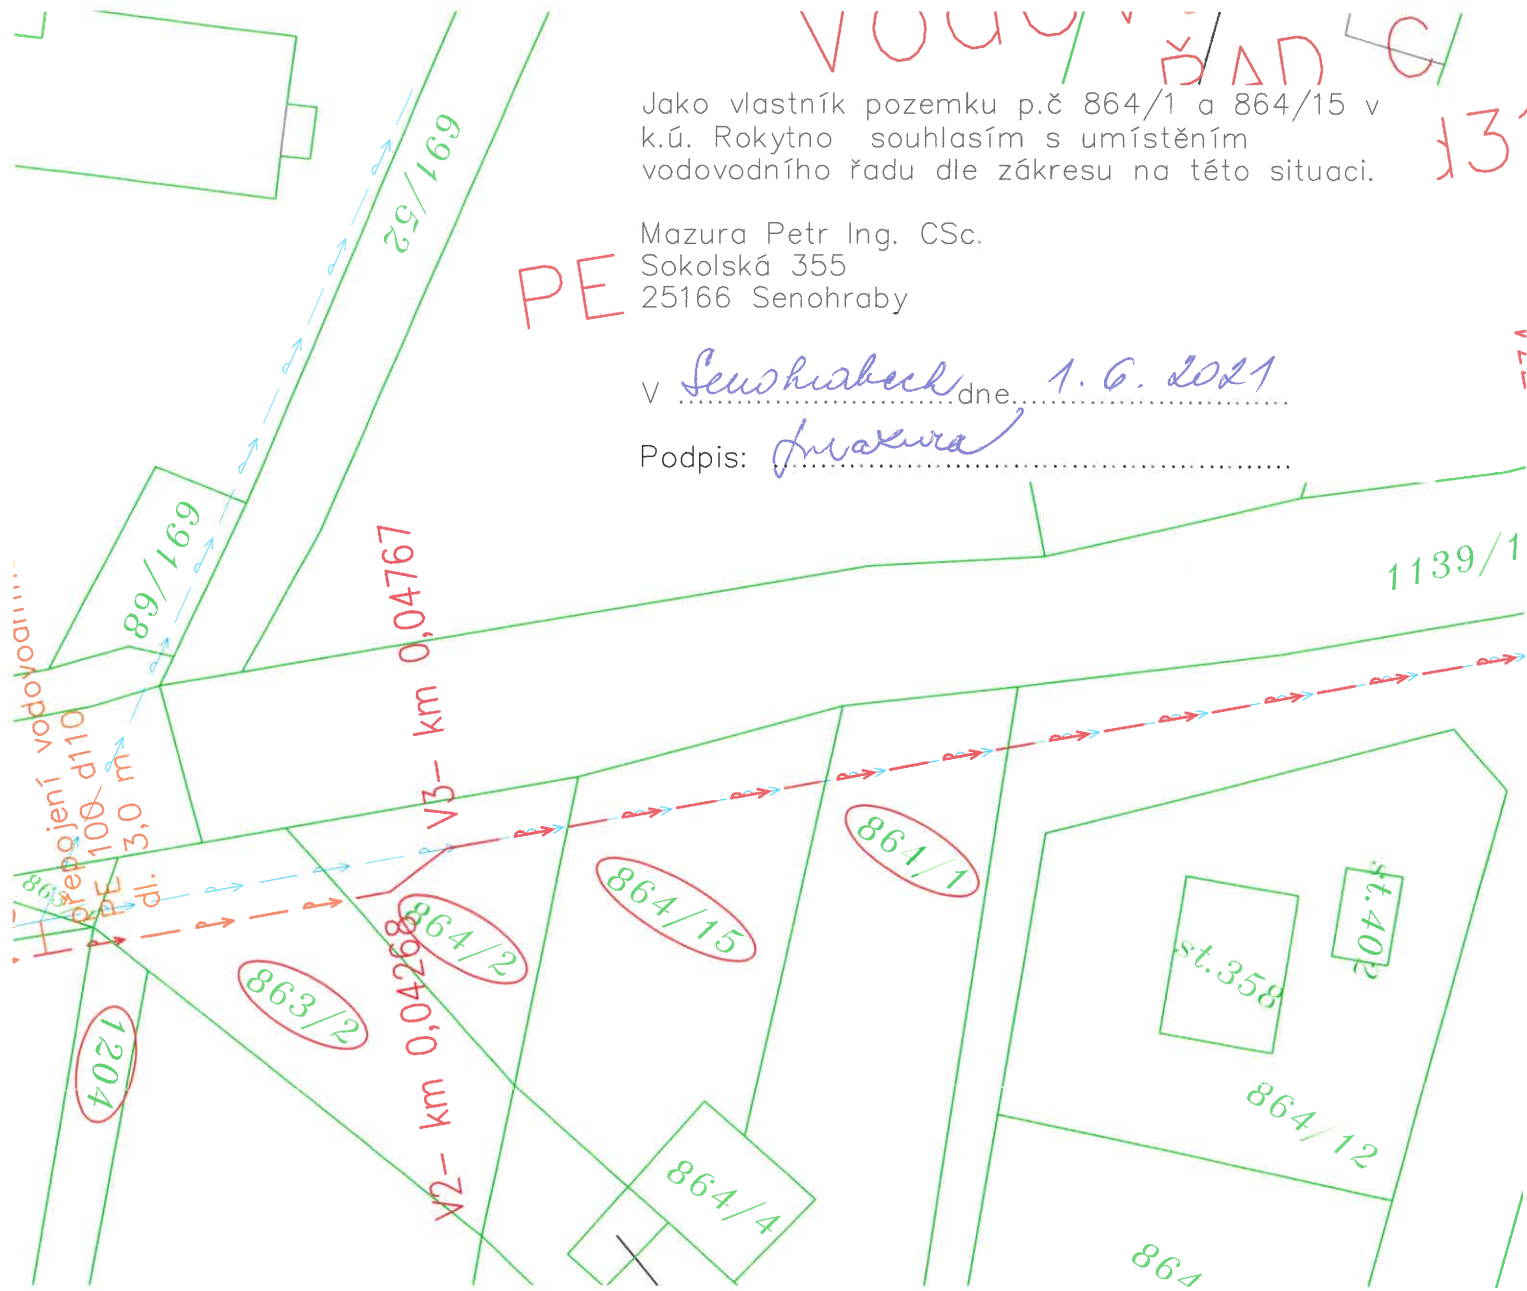 ŘAD C
Jako vlastník pozemku p.č 864/1 a 864/15 v
k.ú. Rokytno souhlasím s umístěním
vodovodního řadu dle zákresu na této situaci.
Mazura Petr Ing. CSc.
Sokolská 355
25166 Senohraby
PE
V Senohrabech dne 1. 6. 2021
Podpis: Mazura
691/52
691/68
1139/1
V3- km 0,04767
přepojení
PE 100 d110
dl. 3,0 m
864/1
864/15
864/2
863/2
V2- km 0,04268
1204
st.358
st.402
864/12
864/4
864